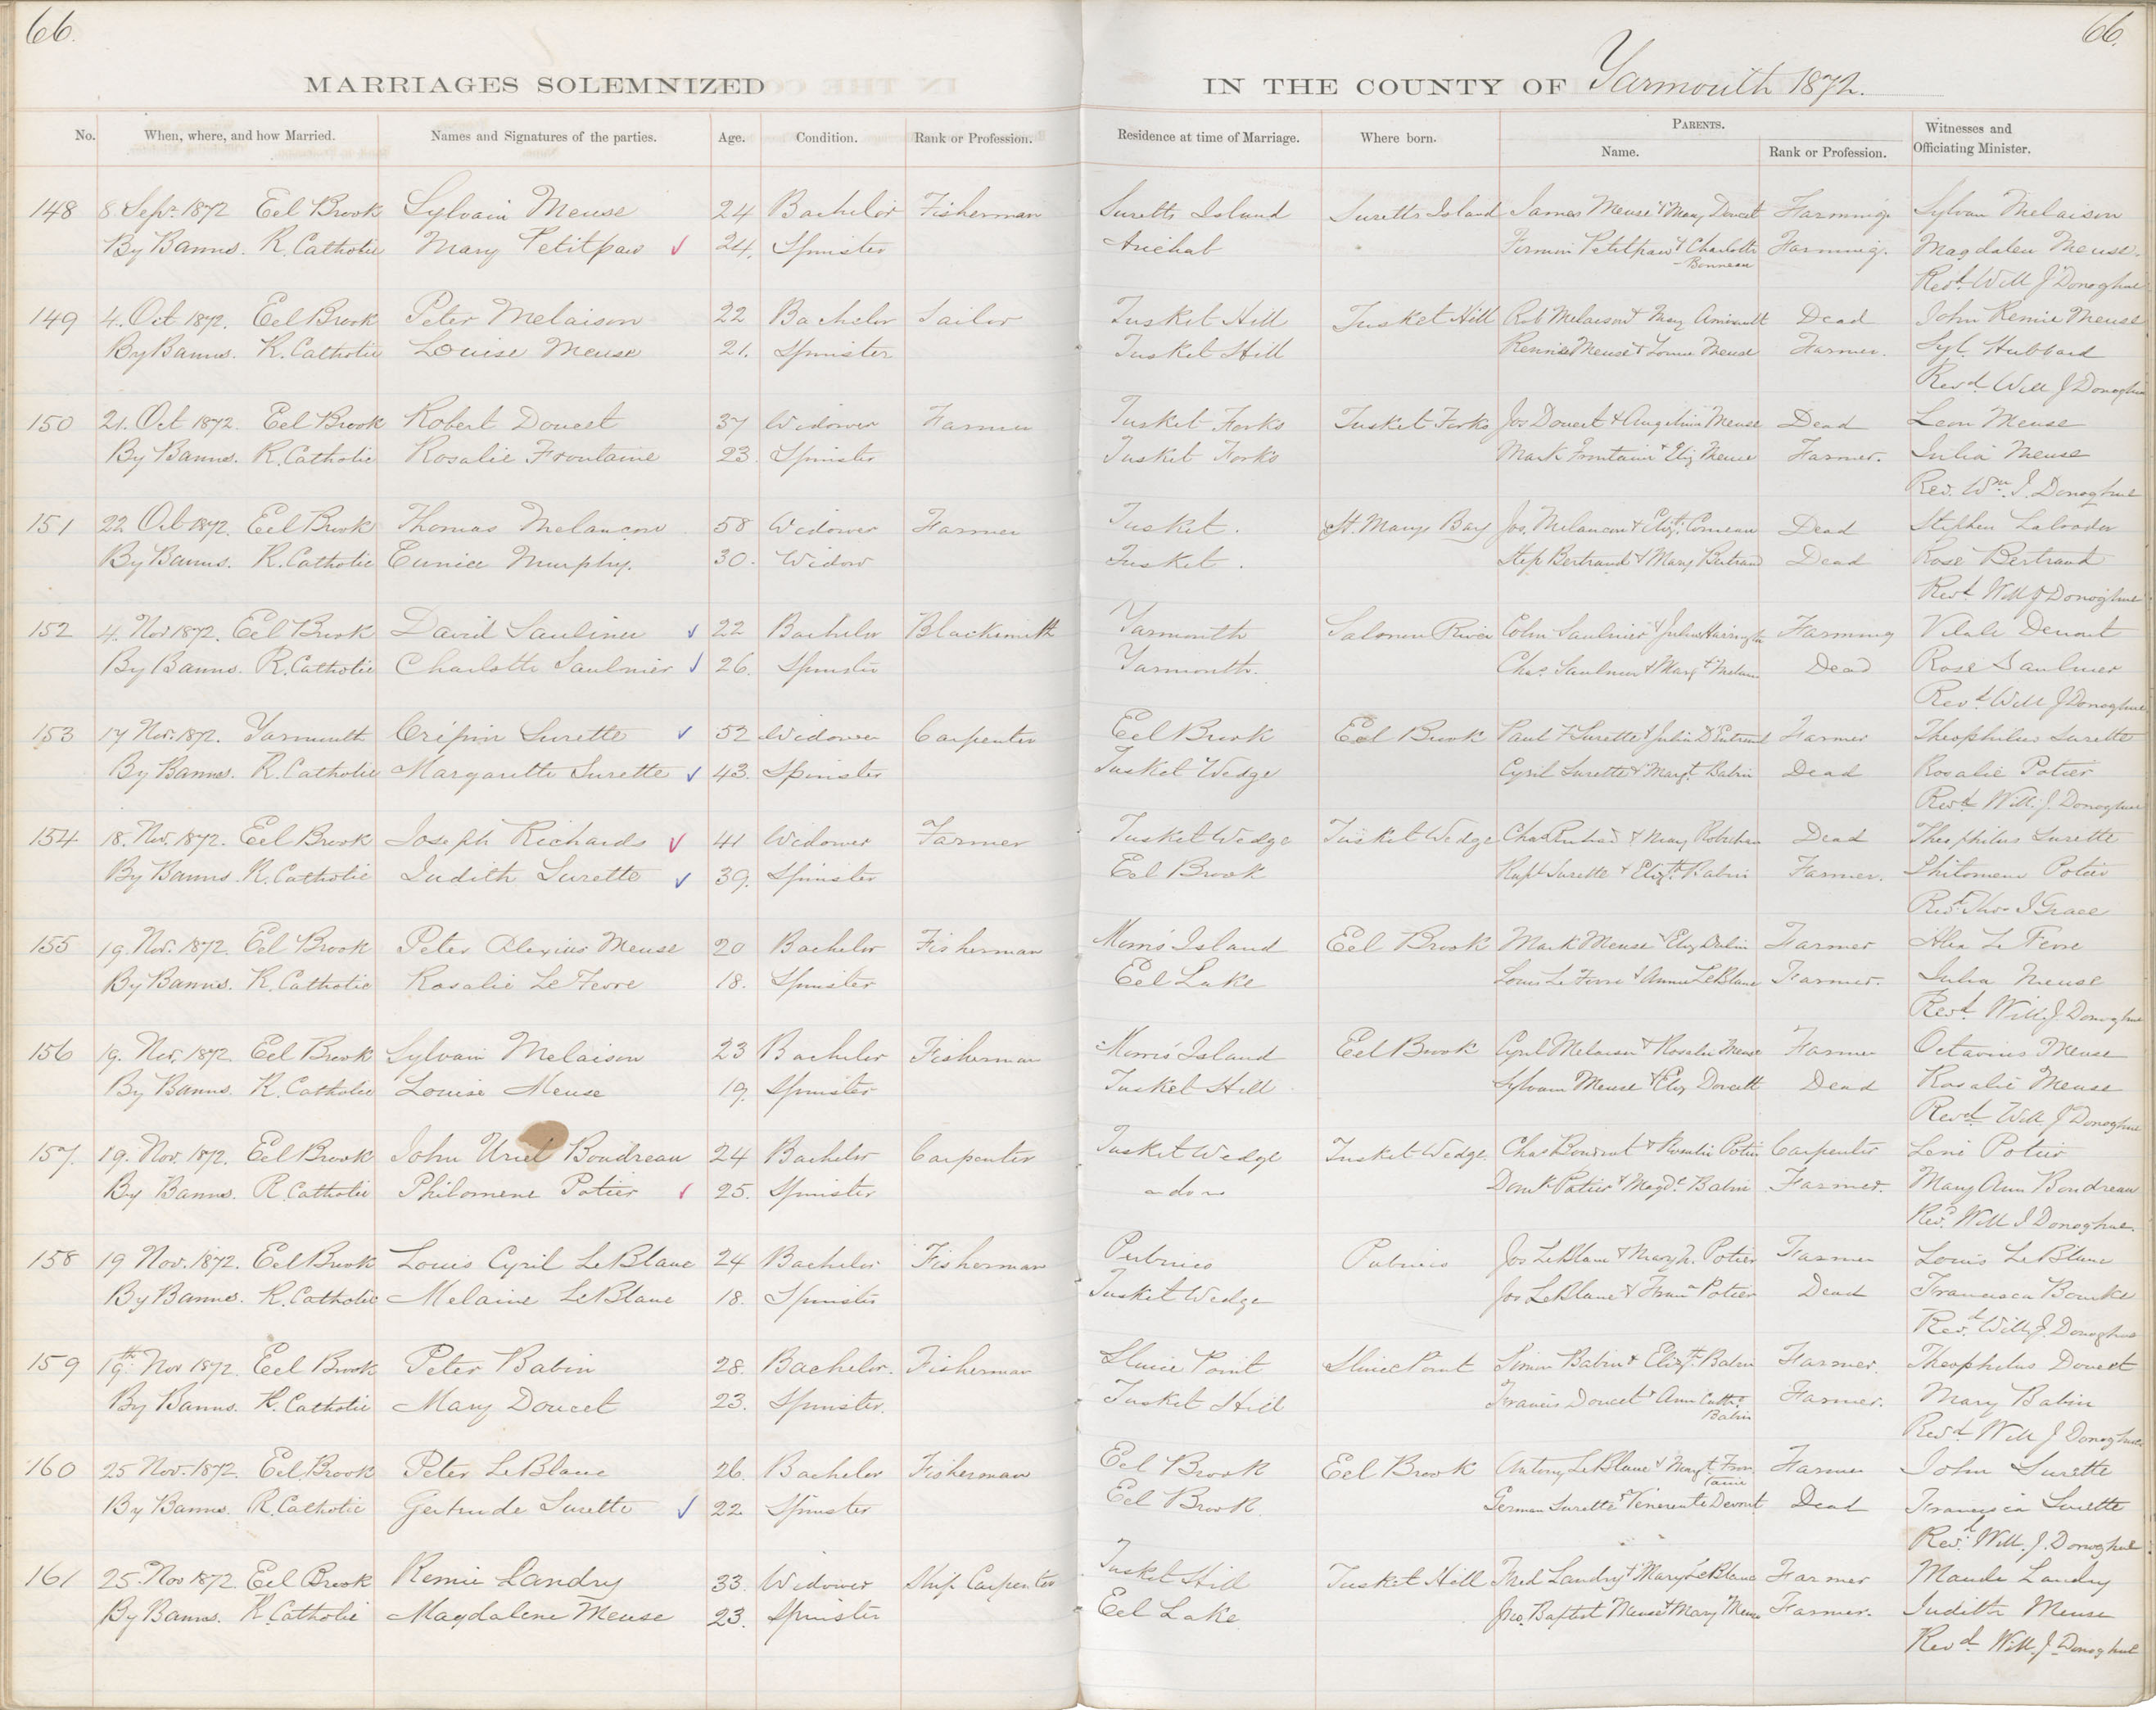 66. 66.
MARRIAGES SOLEMNIZED IN THE COUNTY OF Yarmouth 1872.
No. When, where, and how Married. Names and Signatures of the parties. Age. Condition. Rank or Profession. Residence at time of Marriage. Where born. PARENTS. Name. Rank or Profession. Witnesses and Officiating Minister.
148 8 Sepr 1872 Eel Brook Sylvain Meuse 24 Bachelor Fisherman Suretts Island Suretts Island James Meuse & Mary Doucet Farming Sylvan Melaison
By Banns. R. Catholic Mary Petitpaw 24. Spinster Arichat Firmin Petitpaw & Charlotte Bonneau Farming. Magdalen Meuse.
Revd Will J Donoghue
149 4. Oct 1872. Eel Brook Peter Melaison 22 Bachelor Sailor Tusket Hill Tusket Hill Rob Melaison & Mary Amirault Dead John Remie Meuse
By Banns. R. Catholic Louise Meuse 21. Spinster Tusket Hill Remie Meuse & Louise Meuse Farmer. Syl. Hubbard
Revd Will J Donoghue
150 21. Oct 1872. Eel Brook Robert Doucet 37 Widower Farmer Tusket Forks Tusket Forks Jos Doucet & Angelina Meuse Dead Leon Meuse
By Banns. R. Catholic Rosalie Frontaine 23. Spinster Tusket Forks Mark Frontaine & Eliz Meuse Farmer. Julia Meuse
Rev. Wm J. Donoghue
151 22 Oct 1872. Eel Brook Thomas Melancon 58 Widower Farmer Tusket. St. Marys Bay Jos. Melancon & Elizth Comeau Dead Stephen Labrador
By Banns. R. Catholic Eunice Murphy. 30. Widow Tusket. Step Bertrand & Mary Bertrand Dead Rose Bertrand
Revd Will J Donoghue
152 4. Nov 1872. Eel Brook David Saulnier 22 Bachelor Blacksmith Yarmouth Salomon River Colin Saulnier & Julia Harrington Farming Vitale Doucet
By Banns. R. Catholic Charlotte Saulnier 26. Spinster Yarmouth. Chas. Saulnier & Margt Dead Rose Saulnier
Revd Will J Donoghue
153 17 Nov. 1872. Yarmouth Cripin Surette 52 Widower Carpenter Eel Brook Eel Brook Paul F Surette & Julia D'Entremont Farmer Theophilus Surette
By Banns. R. Catholic Margarette Surette 43. Spinster Tusket Wedge Cyril Surette & Margt. Babin Dead Rosalie Potier
Revd Will. J. Donoghue
154 18. Nov. 1872. Eel Brook Joseph Richards 41 Widower Farmer Tusket Wedge Tusket Wedge Chas Richard & Mary Robichau Dead Theophilus Surette
By Banns R. Catholic Judith Surette 39. Spinster Eel Brook Rapt Surette & Elizth Babin Farmer. Philomene Potier
Revd. Thos J Grace
155 19. Nov. 1872. Eel Brook Peter Alexius Meuse 20 Bachelor Fisherman Morris Island Eel Brook Mark Meuse & Eliz Dulin Farmer Alex Le Fevre
By Banns. R. Catholic Rosalie Le Fevre 18. Spinster Eel Lake Louis Le Fevre & Annie LeBlanc Farmer. Julia Meuse
Revd. Will. J Donoghue
156 19. Nov. 1872. Eel Brook Sylvain Melaison 23 Bachelor Fisherman Morris Island Eel Brook Cyril Melaison & Rosalie Meuse Farmer Octavius Meuse
By Banns. R. Catholic Louise Meuse 19. Spinster Tusket Hill Sylvain Meuse & Eliz Doucett Dead Rosalie Meuse
Revd Will J Donoghue
157. 19. Nov. 1872. Eel Brook John Uriel Boudreau 24 Bachelor Carpenter Tusket Wedge Tusket Wedge. Chas Boudrot & Rosalie Potier Carpenter Leni Potier
By Banns. R. Catholic Philomene Potier 25. Spinster - do - Domk Potier & Magde Babin Farmer. Mary Ann Boudreau
Revd. Will J Donoghue.
158 19 Nov. 1872. Eel Brook Louis Cyril LeBlanc 24 Bachelor Fisherman Pubnico Pubnico Jos LeBlanc & Mary M. Potier Farmer Louis LeBlanc
By Banns. R. Catholic Melaine LeBlanc 18. Spinster Tusket Wedge Jos LeBlanc & Fran Potier Dead Francisca Bourke
Revd. Will J. Donoghue
159 19th. Nov 1872. Eel Brook Peter Babin 28. Bachelor. Fisherman Sluice Point Sluice Point Simon Babin & Elizth. Babin Farmer. Theophilus Doucet
By Banns. R. Catholic Mary Doucet 23. Spinster. Tusket Hill Francis Doucet & Ann Cathe Babin Farmer. Mary Babin
Revd Will J Donoghue
160 25 Nov. 1872. Eel Brook Peter LeBlanc 26. Bachelor Fisherman Eel Brook Eel Brook Antony LeBlanc & Margt Frontaine Farmer John Surette
By Banns. R. Catholic Gertrude Surette 22 Spinster Eel Brook. German Surette & Venerente Doucet Dead Francisca Surette
Revd. Will. J. Donoghue
161 25. Nov 1872. Eel Brook Remie Landry 33. Widower Ship Carpenter Tusket Hill Tusket Hill Fred Landry & Mary LeBlanc Farmer Maude Landry
By Banns. R. Catholic Magdalene Meuse 23. Spinster Eel Lake Jno. Baptist Meuse & Mary Meuse Farmer. Judith Meuse
Revd. Will. J. Donoghue